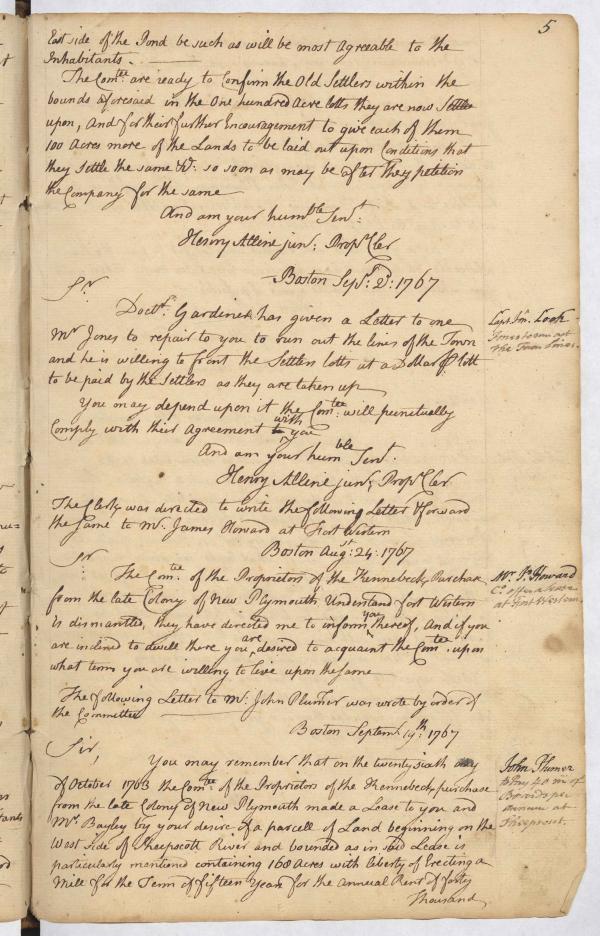 5
East side of the Pond be such as will be most agreeable to the
Inhabitants.
The Comtee: are ready to Confirm the Old Settlers within the
bounds aforesaid in the One hundred Acre lotts they are now Settled
upon, And for their further Encouragement to give each of them
100 Acres more of the Lands to be laid out upon Conditions that
they Settle the same &c: so soon as may be after They petition
the Company for the same
And am your humble Servt:
Henry Alline junr: Props Cler
Boston Sepr: 2d: 1767
Sr
Doctr: Gardiner has given a Letter to one
Mr Jones to repair to you to run out the lines of the Town
and he is willing to front the Settlers lotts at a Dollar P lott
to be paid by the Settlers as they are taken up
You may depend upon it the Comtee: will punctually
Comply with their Agreement with you
And am your humble Servt.
Henry Alline junr; Props Cler
Capt Jn. Cook
Jones to run out
the Town lines.
The Clerk was directed to write the following Letter & forward
the same to Mr. James Howard at Fort Western
Boston Augst: 24: 1767
Sr
The Comtee: of the Proprietors of the Kennebeck Purchase
from the late Colony of New Plymouth Understand Fort Western
is dismantled, they have directed me to inform you thereof, And if you
are inclined to dwell there you are desired to acquaint the Comtee: upon
what terms you are willing to live upon the same
Mr. Js. Howard
at Fort Western
The following Letter to Mr. John Plumer was wrote by order of
the Committee
Boston Septemr. 19th: 1767
Sir,
You may remember that on the twenty sixth day
of October 1763 the Comtee: of the Proprietors of the Kennebeck purchase
from the late Colony of New Plymouth made a Lease to you and
Mr. Bayley by your desire of a parcell of Land beginning on the
West side of Sheepscott River and bounded as in said Lease is
particularly mentioned containing 168 Acres with liberty of Erecting a
Mill for the Term of fifteen Years for the Annual Rent of forty
Thousand
John Plumer
to Pay 40 m of
Boards per
annum at
Sheepscut.